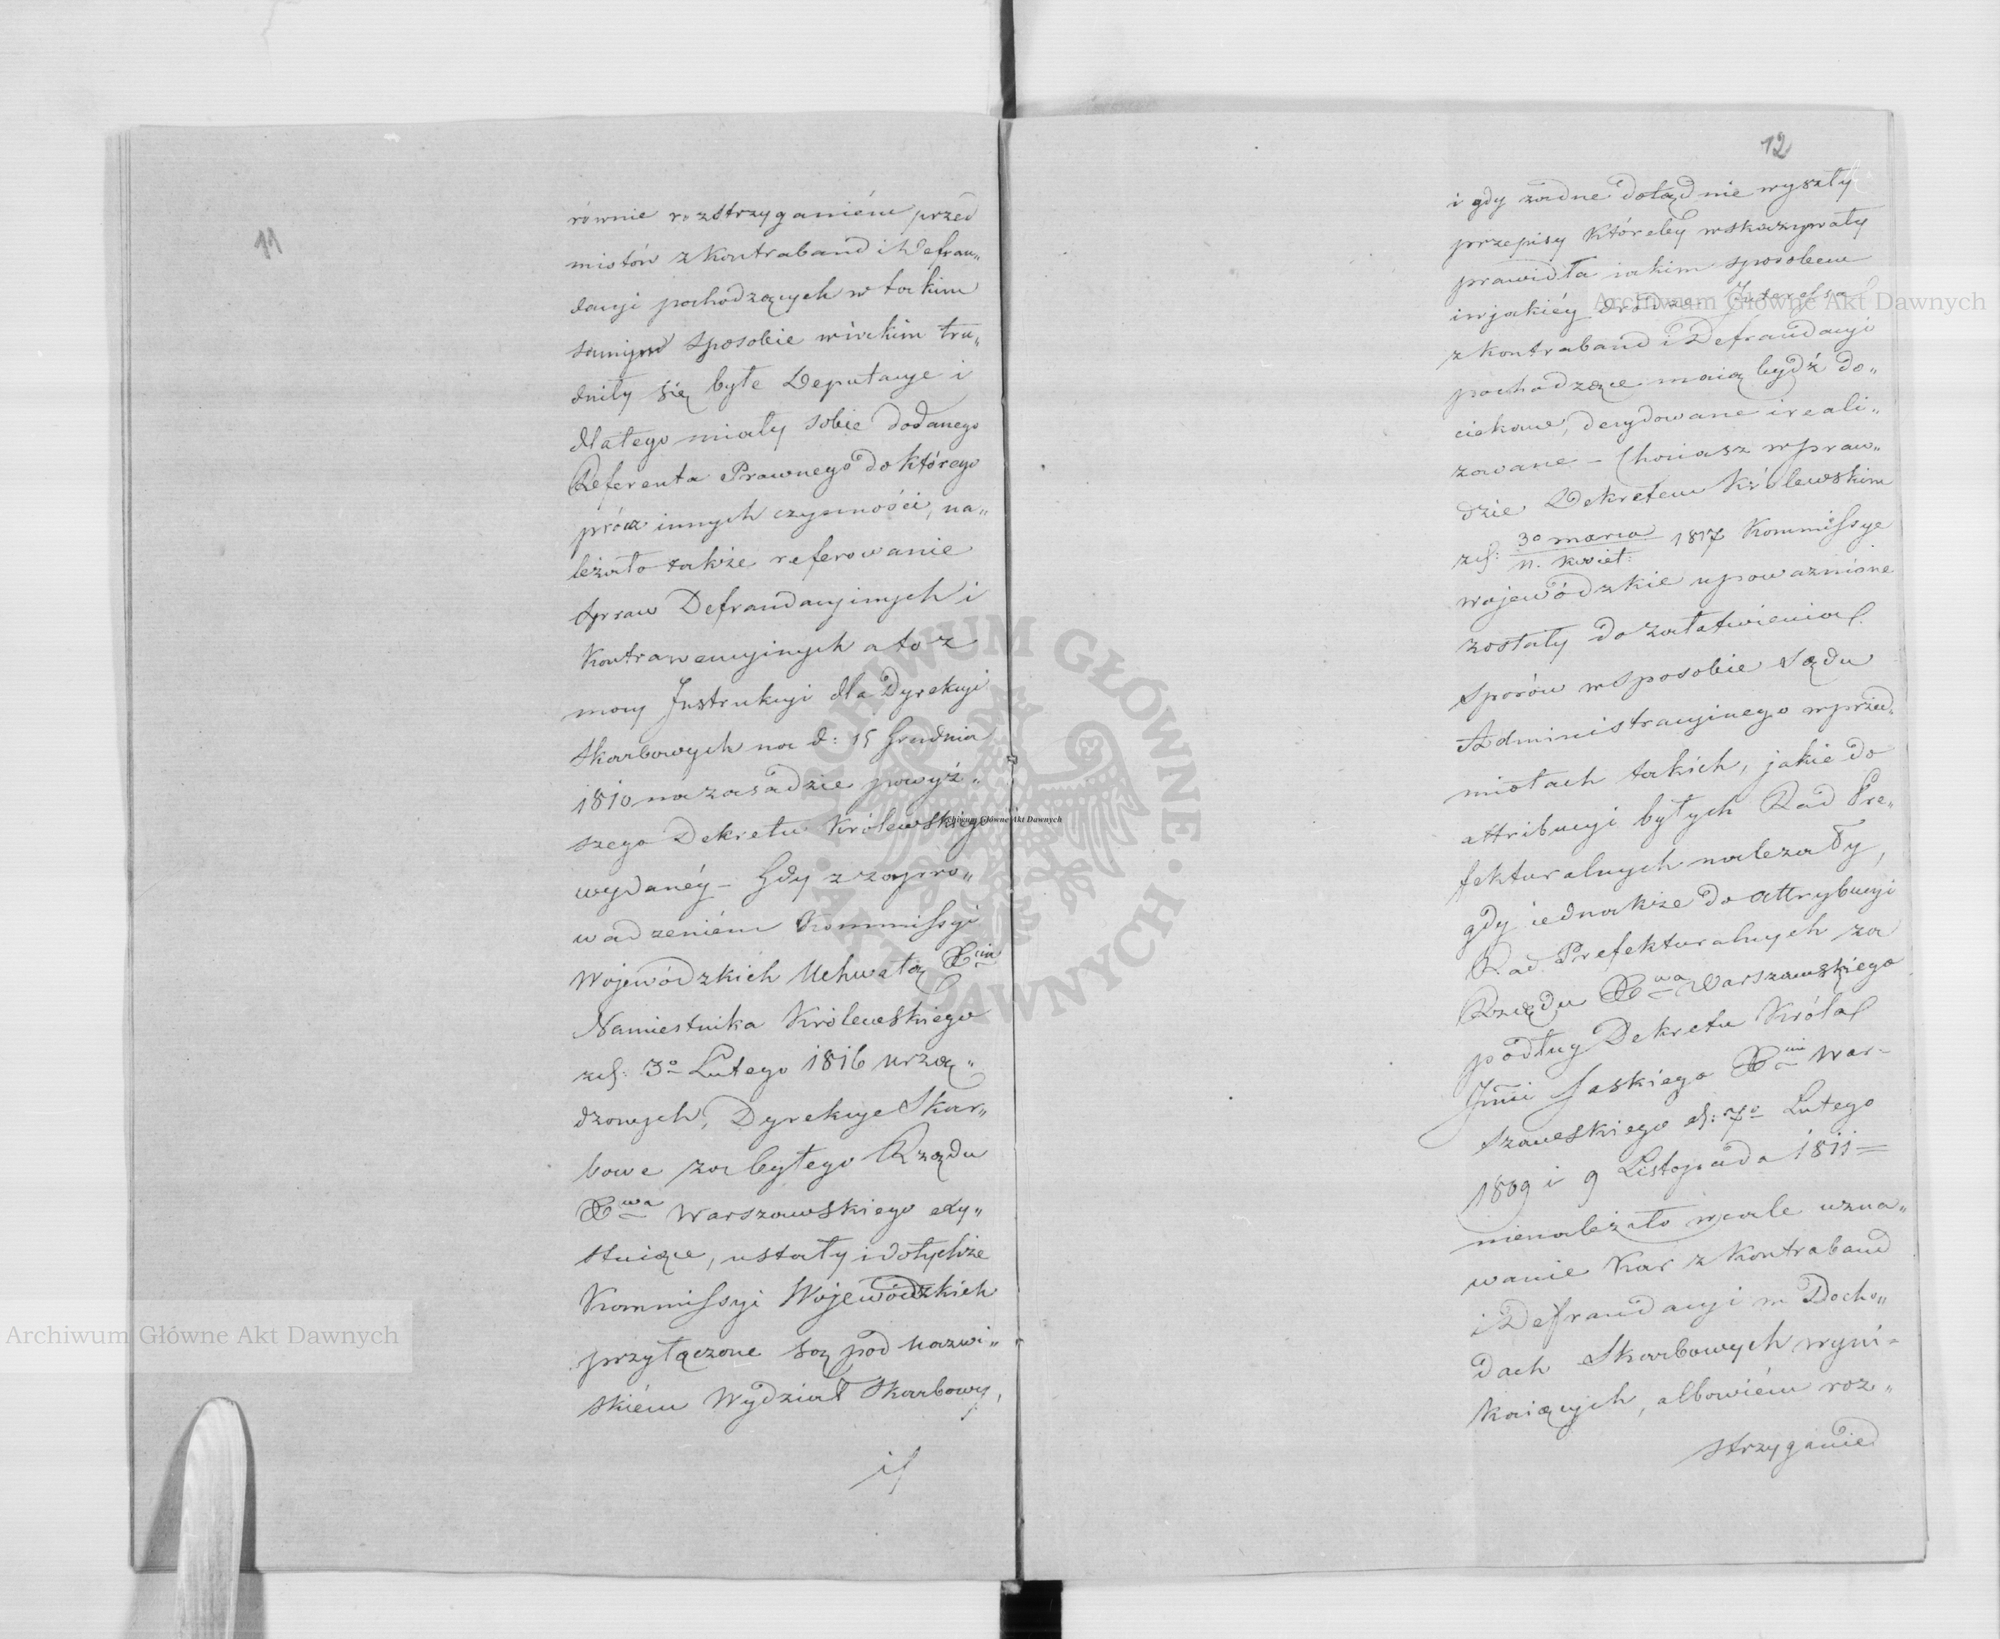 11
równie rozstrzyganiém przed
miotów z Kontraband i Defrau„
dacyi pochodzących w takim
samym sposobie w iakim tru„
dniły się byłe Deputacye i
dlatego miały sobie dodanego
Referenta Prawnego do którego
prócz innych czynności, na„
leżało także referowanie
Spraw Defraudacyinych i
Kontrawencyinych a to z
mocy Instrukcyi dla Dyrekcyi
Skarbowych na d: 15 Grudnia
1810 na zasadzie powyż„
szego Dekretu Królewskiego
wydanéy – Gdy z zapro„
wadzeniém Kommissyi
Wojewódzkich Uchwałą Xcia
Namiestnika Królewskiego
zd: 3o Lutego 1816 urzą„
dzonych, Dyrekcye Skar„
bowe za byłego Rządu
Xwa Warszawskiego exy„
stuiące, ustały i do tychże
Kommissyi Wojewódzkich
przyłączone są pod nazwi„
skiém Wydział Skarbowy,
i
12
i gdy żadne dotąd nie wyszły
przepisy któreby wskazywały
prawidła iakim sposobem
i w jakiéy drodze Interessa
z Kontraband i Defraudacyi
pochodzące maią bydź do„
ciekane, decydowane i reali„
zowane – Chociasz wpraw„
dzie Dekretem Królewskim
zd: 30 marca / 11. Kwiet: 1817 Kommissye
wojewódzkie upoważnione
zostały do załatwienia
Sporów w sposobie Sądu
Administracyinego w przed„
miotach takich, jakie do
attribucyi byłych Rad Pre„
fekturalnych należały,
gdy iednakże do attrybucyi
Rad Prefekturalnych za
Rządu Xwa Warszawskiego
podług Dekretu Króla
Jmci Saskiego Xcia War„
szawskiego d: 7o Lutego
1809 i 9 Listopada 1811 =
nienależało wcale uzna„
wanie Kar z Kontraband
i Defraudacyi w Docho„
dach Skarbowych wyni„
kaiących, albowiém roz„
strzyganie
Archiwum Główne Akt Dawnych
Archiwum Główne Akt Dawnych
Archiwum Główne Akt Dawnych
ARCHIWUM GŁÓWNE · AKT DAWNYCH ·